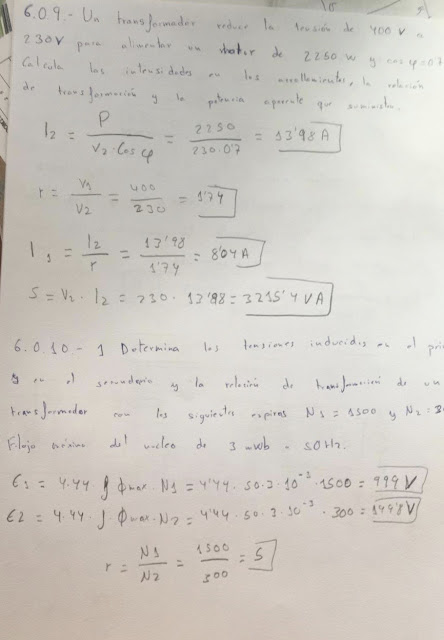 6.0.9.- Un transformador reduce la tensión de 400 V a
230V para alimentar un motor de 2250 W y cos φ=0'7
Calcula las intensidades en los arrollamientos, la relación
de transformación y la potencia aparente que suministra.
I2 = P / V2·Cos φ = 2250 / 230·0'7 = 13'98 A
r = V1 / V2 = 400 / 230 = 1'74
I1 = I2 / r = 13'98 / 1'74 = 8'04 A
S = V2 · I2 = 230 · 13'98 = 3215'4 VA
6.0.10.- 1 Determina las tensiones inducidas en el pri
y en el secundario y la relación de transformación de un
transformador con las siguientes espiras N1 = 1500 y N2 = 3
Flujo máximo del nucleo de 3 mWb - 50Hz.
E1 = 4.44 f Φmax · N1 = 4'44 · 50 · 3 · 10⁻³ · 1500 = 999 V
E2 = 4.44 · f · Φmax · N2 = 4'44 · 50 · 3 · 10⁻³ · 300 = 199'8 V
r = N1 / N2 = 1500 / 300 = 5